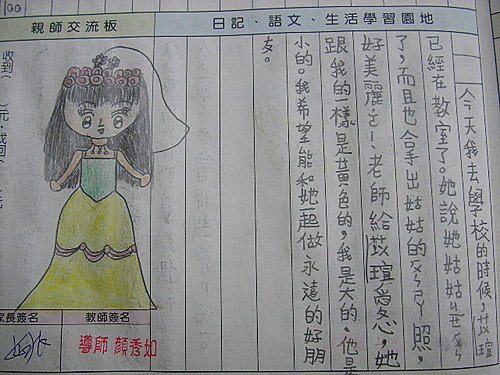 親師交流板
日記、語文、生活學習園地
今天我去學校的時候,苡瑄
已經在教室了。她說她姑姑
了,而且也拿出姑姑的照,
好美麗ㄛ!老師給苡瑄愛心,她
跟我的一樣是黃色的,我是大的,他是
小的。我希望能和她一起做永遠的好朋
友。
收到
元
家長簽名
教師簽名
導師 顏秀如